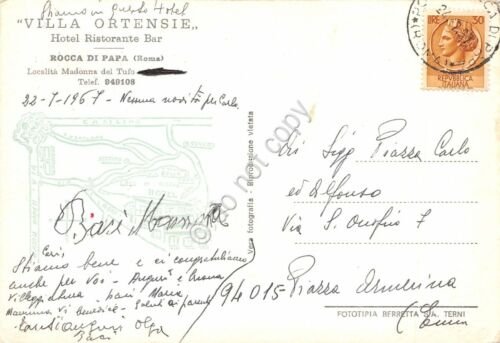 Stiamo in questo Hotel
"VILLA ORTENSIE"
Hotel Ristorante Bar
ROCCA DI PAPA (Roma)
Località Madonna del Tufo
Telef. 949108
22-7-1967 - Nessuna novità per Carlo
Baci Mamma
Cari,
Stiamo bene e ci congratuliamo
anche per Voi - Auguri e buona
Villeggiatura - baci Maria
Mamma vi benedice - Saluti ai parenti
Tanti auguri Olga
Baci
Vera fotografia - Riproduzione vietata
LIRE 30
REPUBBLICA
ITALIANA
Sigg Piazza Carlo
ed Alfonso
Via S. Onofrio 7
94015 Piazza Armerina
(Enna)
FOTOTIPIA BERRETTA S/A. TERNI
do not copy